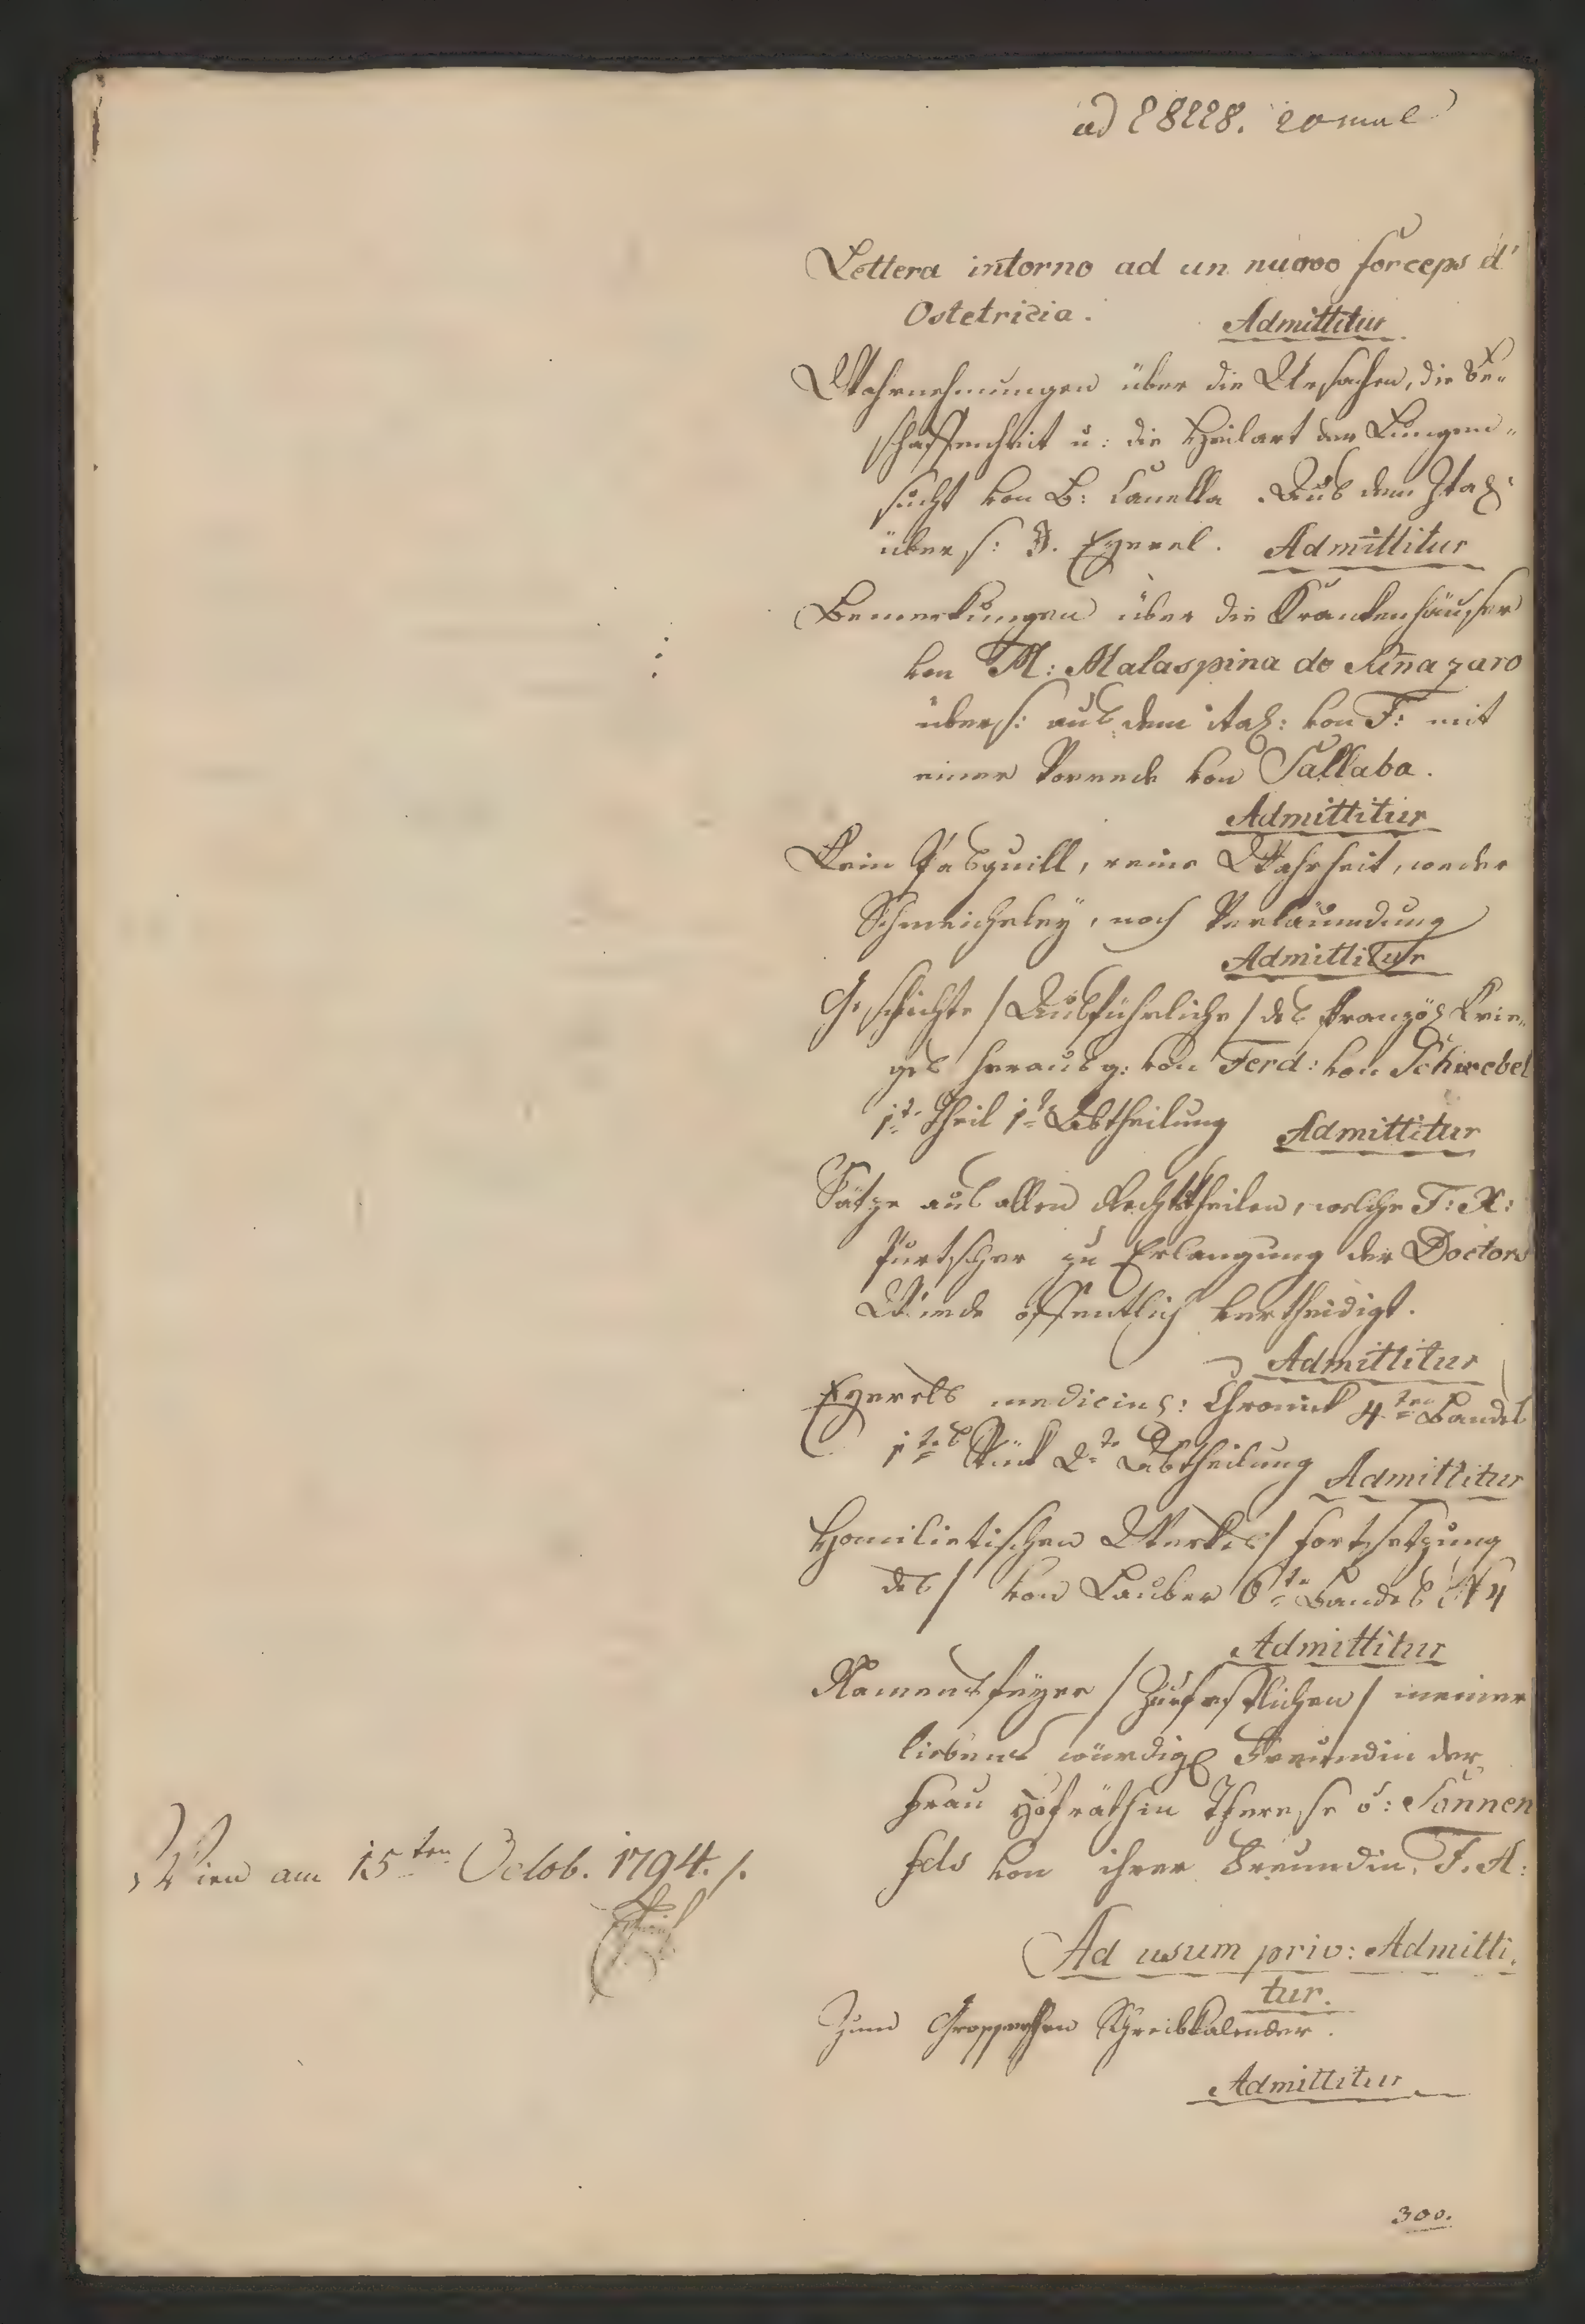 ad 28228. 20 mal
Lettera intorno ad un nuovo forceps d'
Ostetricia.
Admittitur
Wahrnehmungen über die Ursachen, die Be„
schaffenheit u: die Heilart der Lungen„
sucht von B: Canella. Aus dem Ital:
übers: J. Eyerel. Admittitur
Bemerkungen über die Krankenhäuser
von M: Malaspina de Sannazaro
übers: aus dem ital: von F: mit
einer Vorrede von Sallaba.
Admittitur
Kein Pasquill, reine Wahrheit, weder
Schmeicheley, noch Verläumdung
Admittitur
Geschichte /Ausführliche/ des französ Krie„
ges herausg: von Ferd: von Schirebel
1te Theil 1te Abtheilung Admittitur
Sätze aus allen Rechtstheilen, welche F: X:
Purtscher zu Erlangung der Doctors
Würde öffentlich vertheidigt.
Admittitur
Eyerels medicins: Chronick 4ten Bandes
1tes Stück 2te Abtheilung Admittitur
Homilietischen Werkes/ Fortsetzung
des/ von Lauber 6te Bandes N 4
Admittitur
Namensfeyer /Zur festlichen/ meiner
liebens würdig Freundin der
Frau Hofräthin Therese v: Sonnen
fels von ihrer Freundin, F. A:
Wien am 15ten Octob. 1794. /.
Ad usum priv: Admitti„
tur.
Zum Grosserschen Schreibkalender.
Admittitur
300.